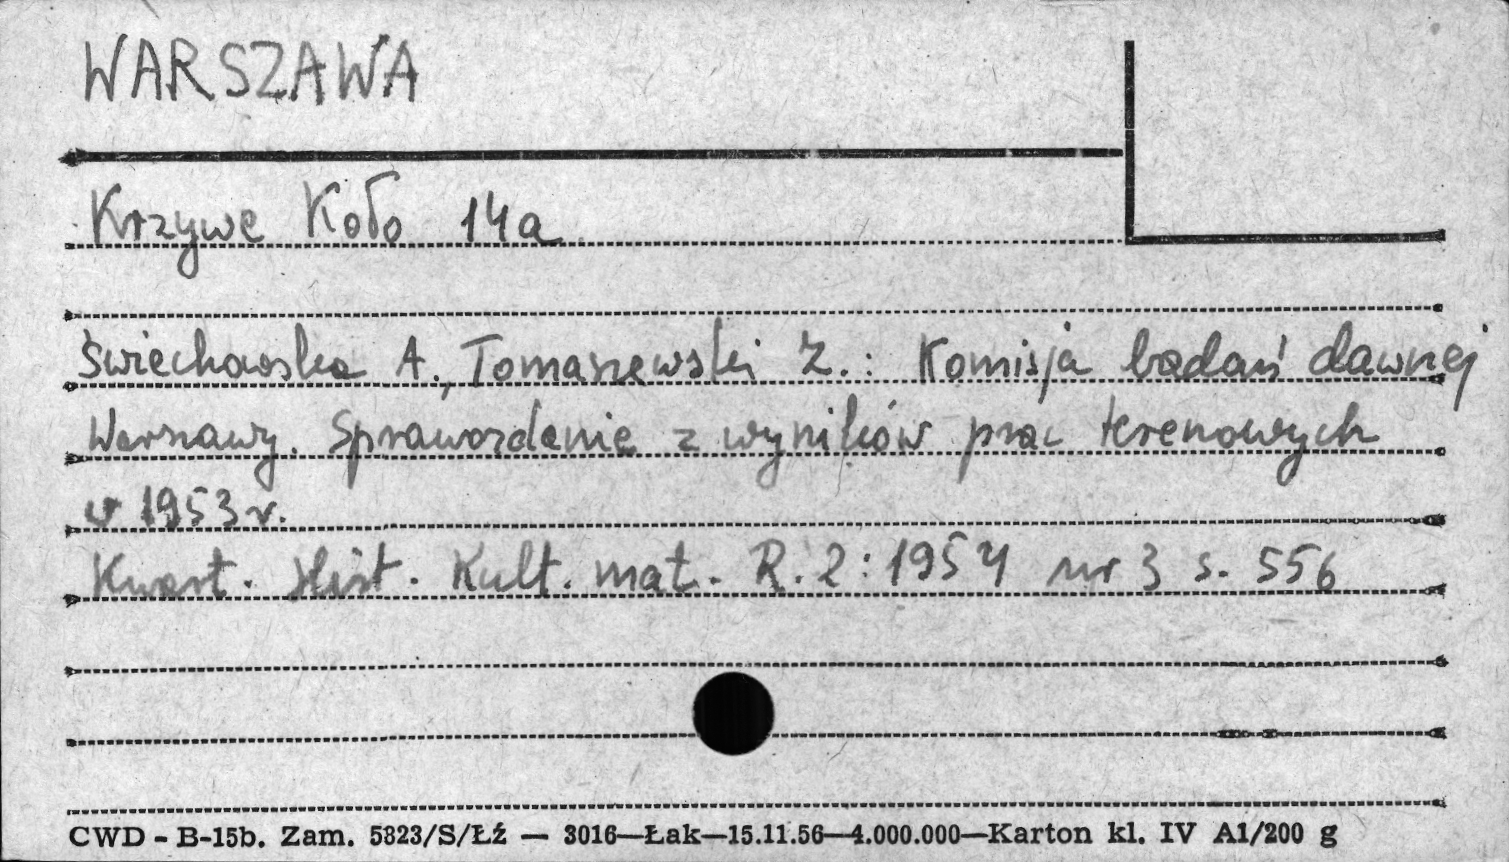 WARSZAWA
Krzywe Koło 14a
Świechowska A., Tomaszewski Z.: Komisja badań dawnej
Warszawy. Sprawozdanie z wyników prac terenowych
w 1953 r.
Kwart. Hist. Kult. mat. R. 2: 1954 nr 3 s. 556
CWD - B-15b. Zam. 5323/S/Łź — 3016—Łak—15.11.56—4.000.000—Karton kl. IV A1/200 g